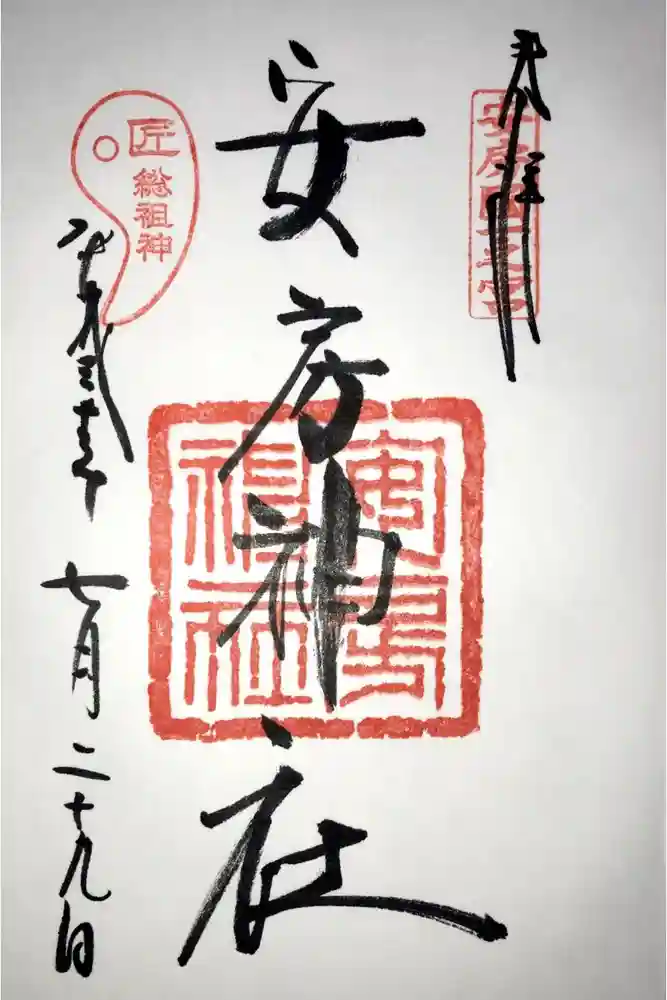 奉拝
安房國一之宮
安房神社
安房
神社
匠
総祖神
平成三十年
七月二十九日